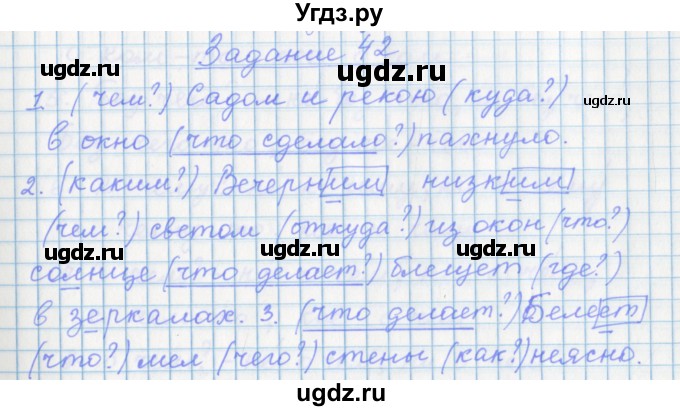 Угдз.ру
Задание 42
1. (чем?) Садом и рекою (куда?)
в окно (что сделало?) пахнуло.
2. (каким?) Вечерним низким
(чем?) светом (откуда?) из окон (что?)
солнце (что делает?) блещет (где?)
в зеркалах. 3. (что делает?) Белеет
(что?) мел (чего?) стены (как?) неясно.
ugdz.ru
ugdz.ru
ugdz.ru
ugdz.ru
ugdz.ru
ugdz.ru
ugdz.ru
ugdz.ru
ugdz.ru